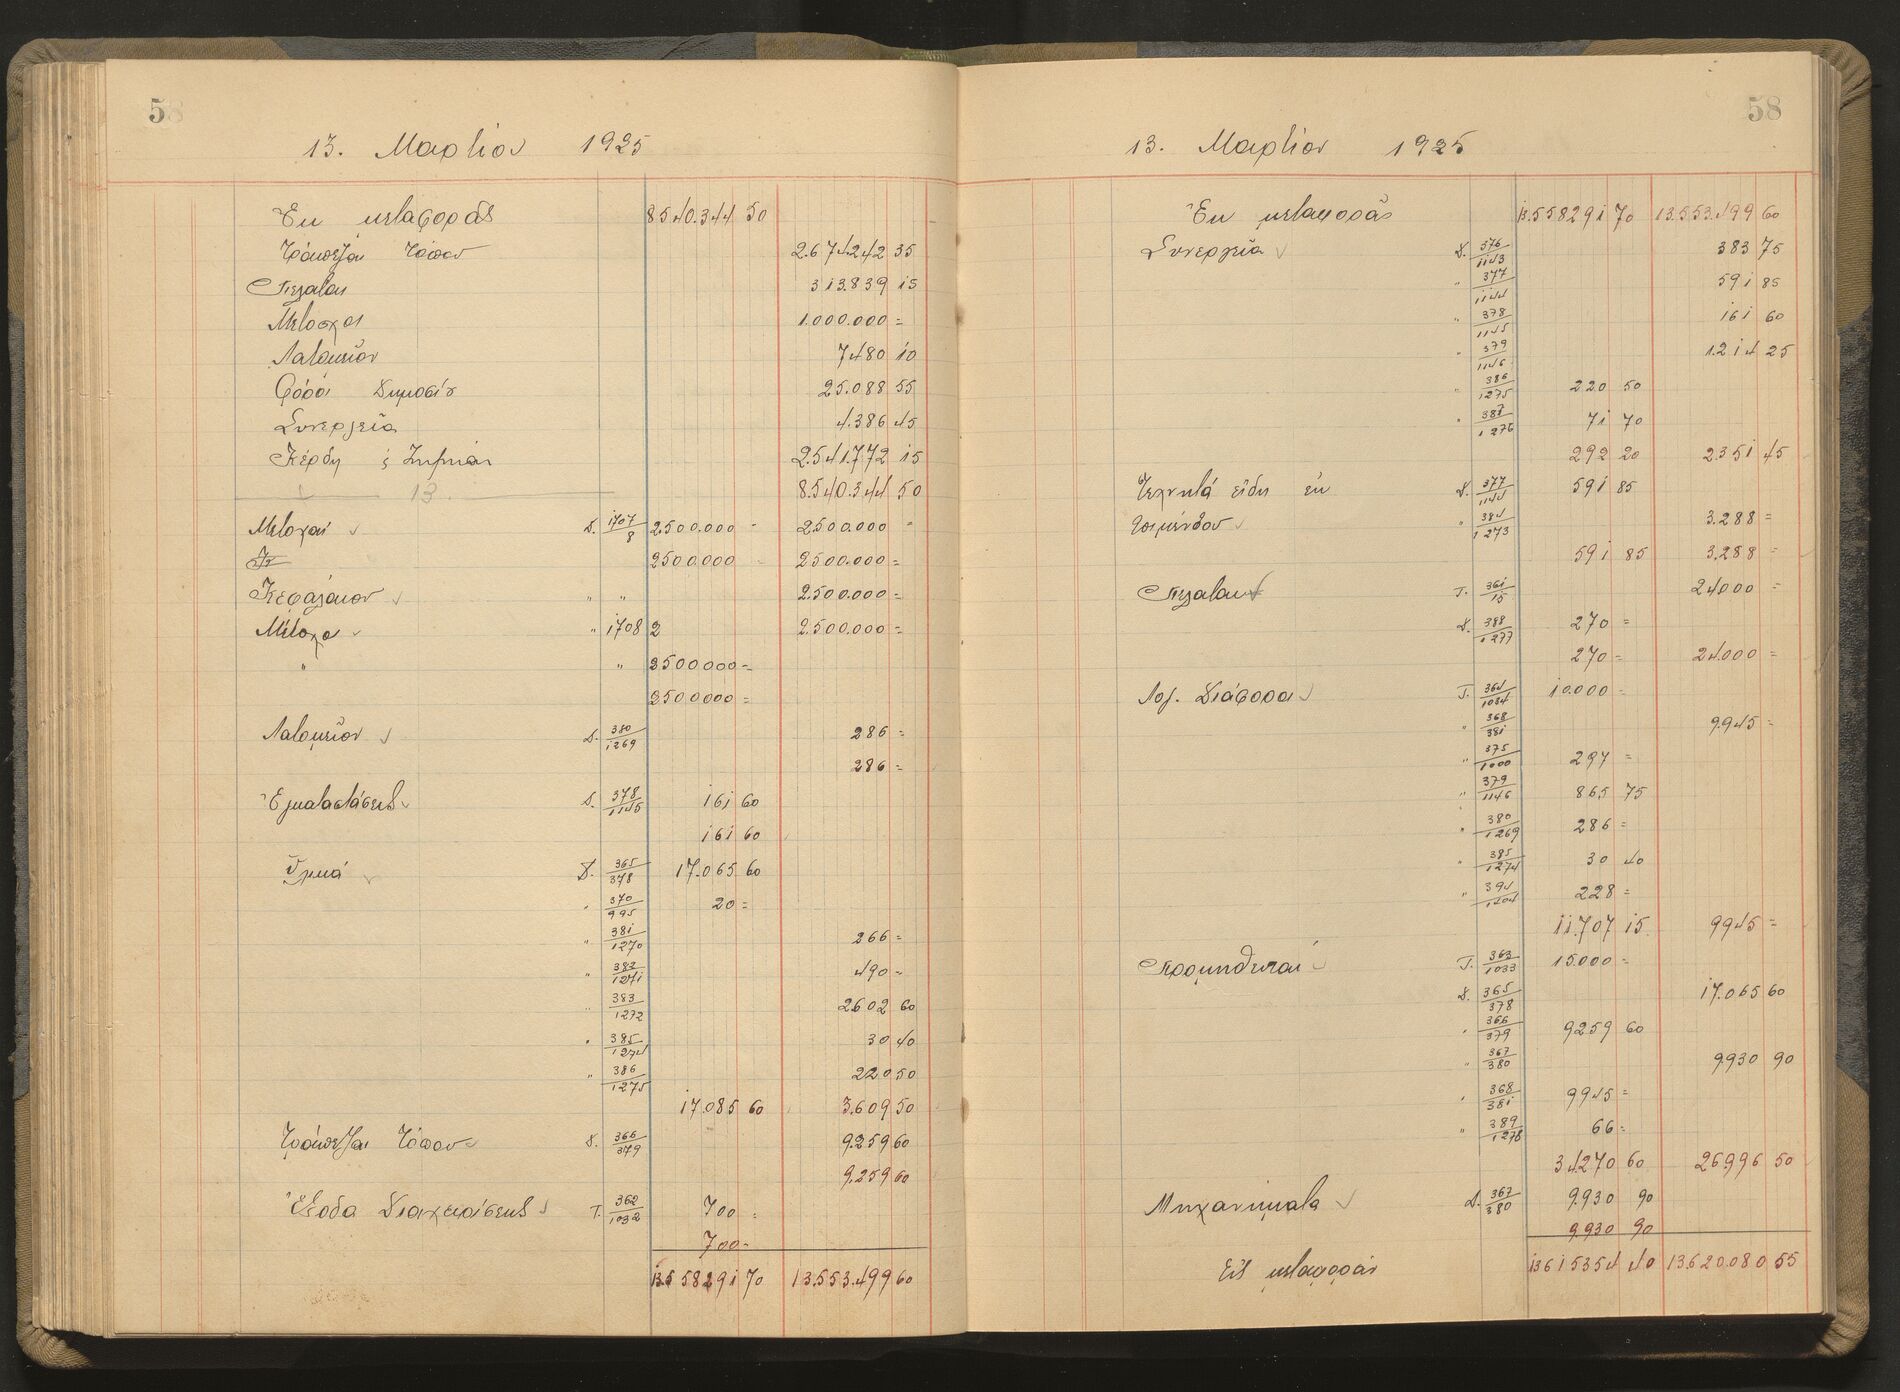 58
13. Μαρτίου 1925
Ἐκ μεταφορᾶς 8540.344 50
Τράπεζαι Τόκου 2.674.242 35
Πελάται 313.839 15
Μέτοχοι 1.000.000 =
Λατομεῖον 7480 10
Φόροι Δημοσίου 25.088 55
Συνεργεῖα 4.386 45
Κέρδη ϛ Ζημίαι 2.541.772 15
13. 8.540.344 50
Μετοχαί Δ. 1707/8 2.500.000 = 2.500.000 =
2500.000 = 2500.000 =
Κεφάλαιον " " 2.500.000 =
Μέτοχοι " 1708 2 2.500.000 =
" " 2500000 =
2500000 =
Λατομεῖον Δ. 380/1269 286 =
286 =
Ἐγκαταστάσεις Δ. 378/1145 161 60
161 60
Ὑλικά Δ. 365/378 17.065 60
" 370/995 20 =
" 381/1270 266 =
" 382/1271 490 =
" 383/1272 2602 60
" 385/1274 30 40
" 386/1275 220 50
17.085 60 3.609 50
Τράπεζαι Τόκου Δ. 366/379 9.259 60
9.259 60
Ἔξοδα Διαχειρίσεως Τ. 362/1032 700 =
700 =
13.558291 70 13.553.499 60
58
13. Μαρτίου 1925
Ἐκ μεταφορᾶς 13.558291 70 13.553.499 60
Συνεργεῖα Δ. 376/1143 383 75
" 377/1144 591 85
" 378/1145 161 60
" 379/1146 1.214 25
" 386/1275 220 50
" 387/1276 71 70
292 20 2351 45
Τεχνητά εἴδη ἐκ Δ. 377/1144 591 85
τσιμέντου " 384/1273 3.288 =
591 85 3.288 =
Πελάται Τ. 361/15 24000 =
Δ. 388/1277 270 =
270 = 24.000 =
Λογ. Διάφοροι Τ. 364/1034 10.000 =
" 368/381 9.945 =
" 375/1000 297 =
" 379/1146 865 75
" 380/1269 286 =
" 385/1274 30 40
" 394/1404 228 =
11.707 15 9945 =
Προμηθευταί Τ. 363/1033 15.000 =
Δ. 365/378 17.065 60
" 366/379 9259 60
" 367/380 9.930 90
" 368/381 9945 =
" 389/1278 66 =
34.270 60 26.996 50
Μηχανήματα Δ. 367/380 9.930 90
9.930 90
Εἰς μεταφοράν 13615354 40 13.620.080 55